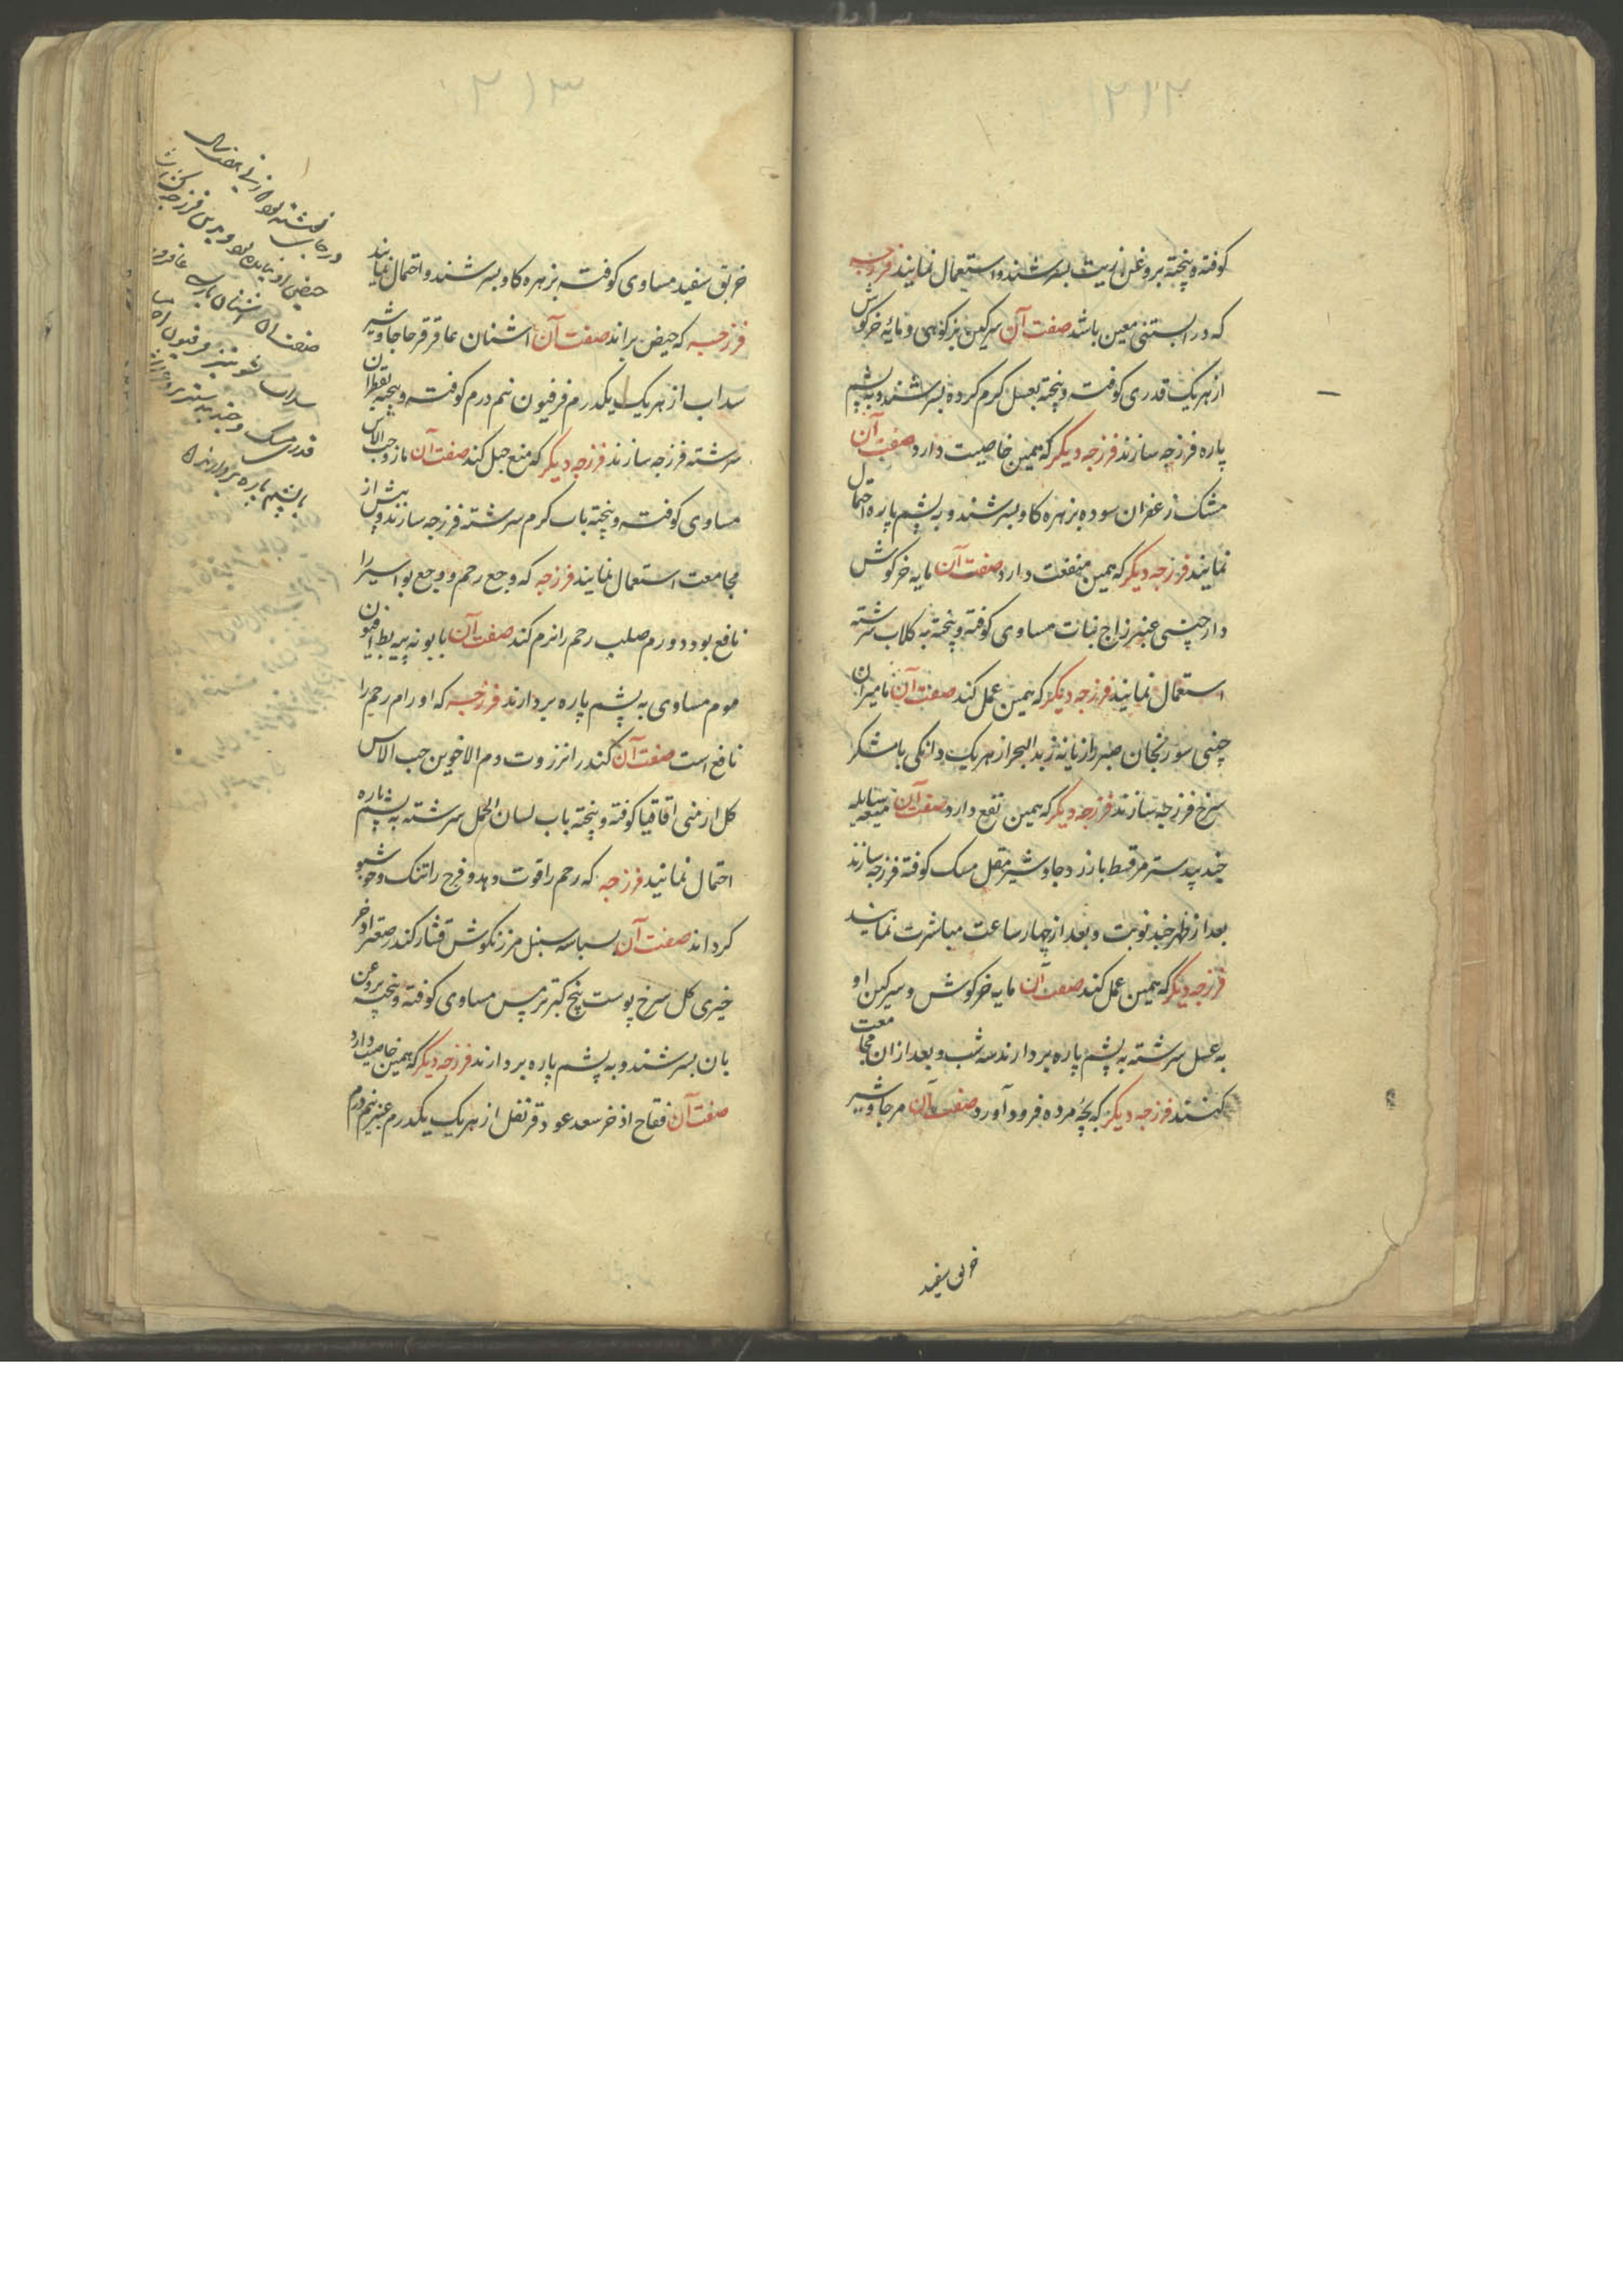 ۲۱۲
کوفته و پخته بروغن زیت بسرشند و استعمال نمایند فرزجه
که در ابستنی معین باشد صفت آن سرکین بزکوهی و مایه خرکوش
از هریک قدری کوفته و پخته بعسل کرم کرده بسرشند و به پشم
پاره فرزجه سازند فرزجه دیکر که همین خاصیت دارد صفت آن
مشک زعفران سوده بزهره کاو بسرشند و به پشم پاره احتمال
نمایند فرزجه دیکر که همین منفعت دارد صفت آن مایه خرکوش
دارچینی عنبر زاج نبات مساوی کوفته و پخته به کلاب سرشته
استعمال نمایند فرزجه دیکر که همین عمل کند صفت آن مامیران
چینی سورنجان صبر رازیانه زبدالبحر از هریک دانکی با شکر
سرخ فرزجه سازند فرزجه دیکر که همین نفع دارد صفت آن میعه سایله
جندبیدستر مر قسط بازرد جاوشیر مقل مسک کوفته فرزجه سازند
بعد از طهر چند نوبت و بعد از چهار ساعت مباشرت نمایند
فرزجه دیکر که همین عمل کند صفت آن مایه خرکوش و سرکین او
به عسل سرشته به پشم پاره بردارند سه شب و بعد ازان مجامعت
کنند فرزجه دیکر که بچه مرده فرود آورد صفت آن مر جاوشیر
خربق سفید
۲۱۳
خربق سفید مساوی کوفته بزهره کاو بسرشند و احتمال نمایند
فرزجه که حیض براند صفت آن اشنان عاقرقرحا جاوشیر
سداب از هریک یکدرم فرفیون نیم درم کوفته و پخته بقطران
سرشته فرزجه سازند فرزجه دیکر که منع حبل کند صفت آن مازو حب الاس
مساوی کوفته و پخته باب کرم سرشته فرزجه سازند و پیش از
مجامعت استعمال نمایند فرزجه که وجع رحم و وجع بواسیر را
نافع بود و ورم صلب رحم را نرم کند صفت آن بابونه پیه بط افیون
موم مساوی به پشم پاره بردارند فرزجه که اورام رحم را
نافع است صفت آن کندر انزروت دم الاخوین حب الاس
کل ارمنی اقاقیا کوفته و پخته باب لسان الحمل سرشته به پشم پاره
احتمال نمایند فرزجه که رحم را قوت دهد و فرج را تنک و خوشبو
کرداند صفت آن بسباسه سنبل مرزنکوش قشار کندر صعتر اذخر
خیری کل سرخ پوست بیخ کبر ترمس مساوی کوفته و پخته بروغن
بان بسرشند و به پشم پاره بردارند فرزجه دیکر که همین خاصیت دارد
صفت آن فقاح اذخر سعد عود قرنفل از هریک یکدرم عنبر نیم درم
صفت ان اشنان پارسی عاقرقرحا
سداب شونیز فرفیون
قدری مسک و جندبیدستر
با پشم پاره بردارند